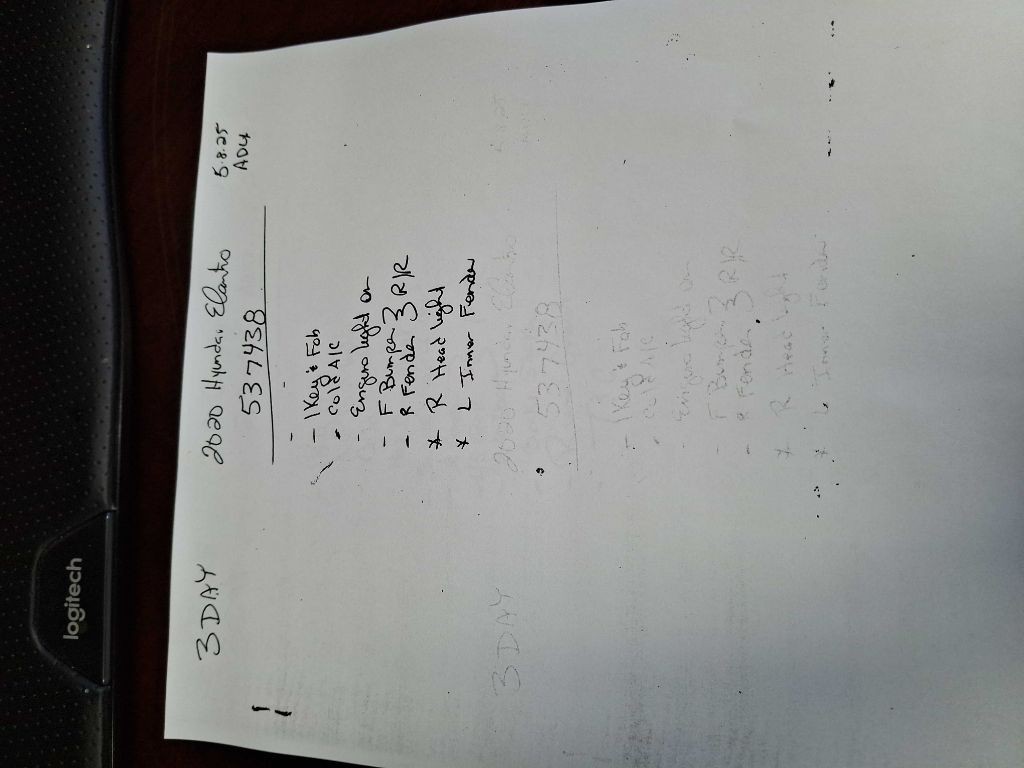 3 DAY 2020 Hyundai Elantra 5.8.25
537438 ADU
- 1 Key & Fob
- Cold A/C
- Engine light on
- F Bumper } R/R
- R Fender
* R Head light
* L Inner Fender
3 DAY 2020 Hyundai Elantra 5.8.25
537438
- 1 Key & Fob
- Cold A/C
- Engine light on
- F Bumper } R/R
- R Fender
* R Head light
* L Inner Fender
logitech